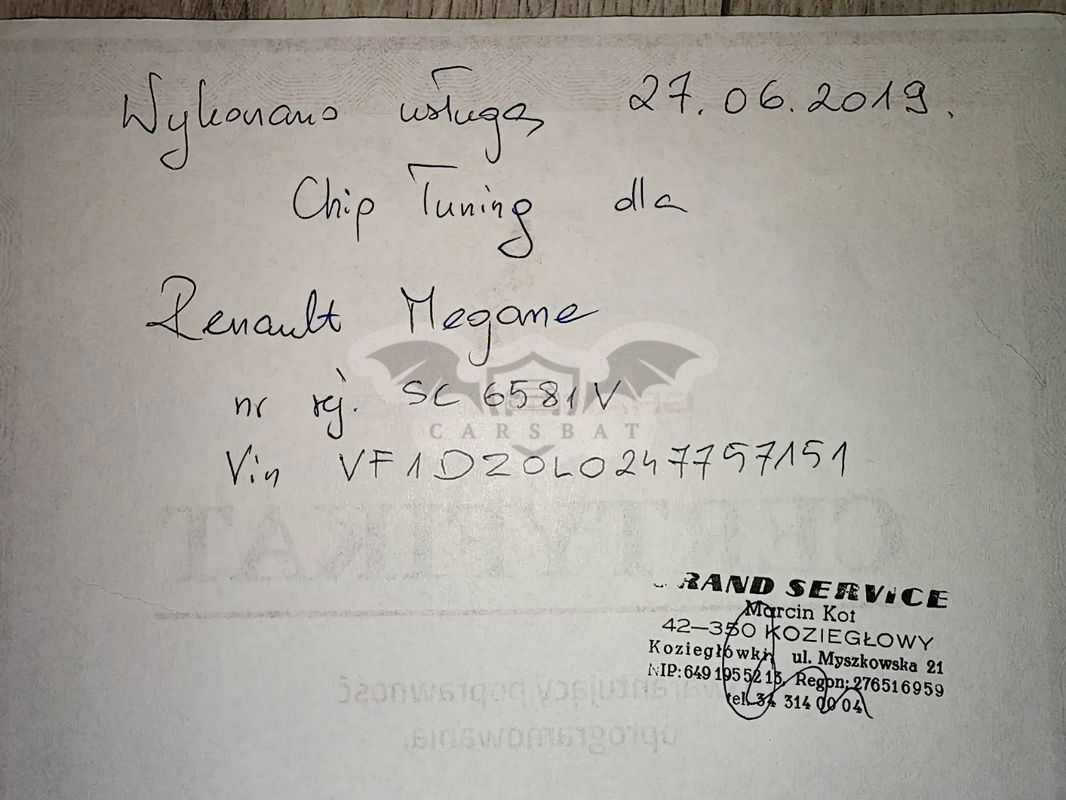 Wykonano usługę 27.06.2019.
Chip Tuning dla
Renault Megane
nr rej. SC 6581V
CARSBAT
Vin VF1DZ0L0247757151
CERTYFIKAT
RAND SERVICE
Marcin Kot
42-350 KOZIEGŁOWY
Koziegłówki ul. Myszkowska 21
NIP: 649 195 52 13, Regon: 276516959
tel. 34 314 00 04
gwarantujący poprawność
oprogramowania.